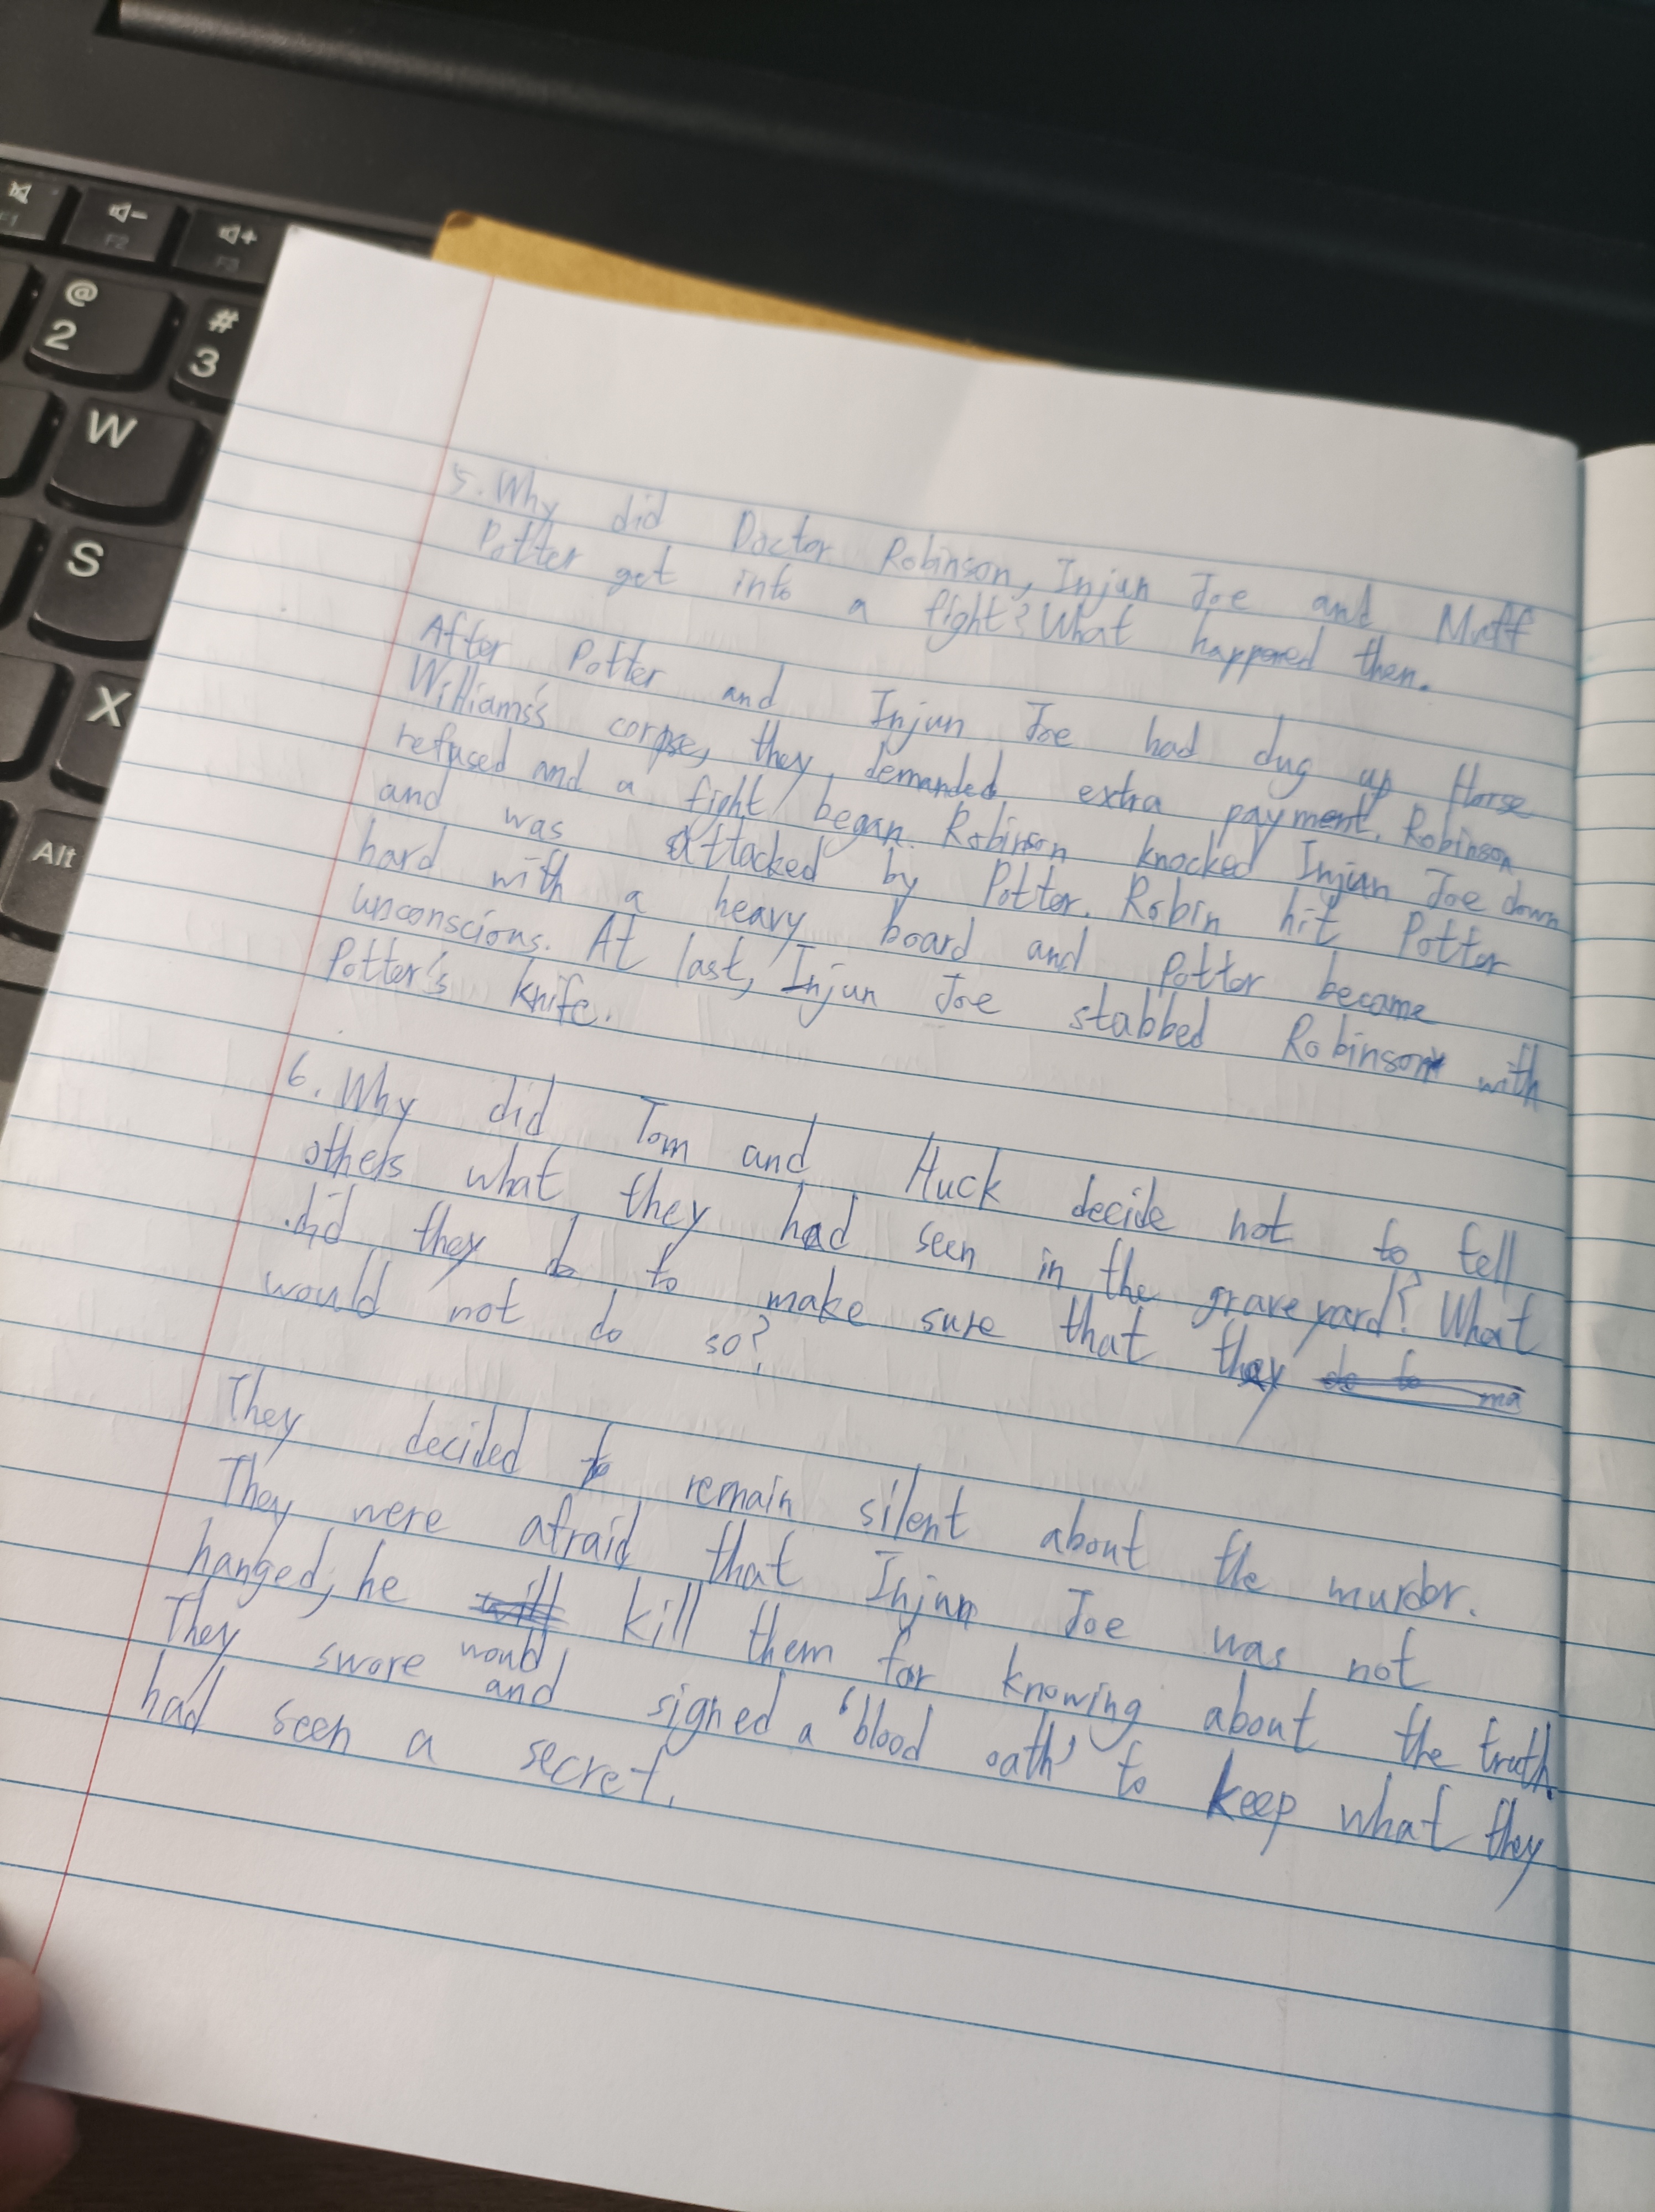 F1
F2
F3
@
2
#
3
W
S
X
Alt
5. Why did Doctor Robinson, Injun Joe and Muff
Potter get into a fight? What happened then.
After Potter and Injun Joe had dug up Horse
Williams's corpse, they demanded extra payment. Robinson
refused and a fight began. Robinson knocked Injun Joe down
and was attacked by Potter. Robin hit Potter
hard with a heavy board and Potter became
unconscious. At last, Injun Joe stabbed Robinson with
Potter's knife.
6. Why did Tom and Huck decide not to tell
others what they had seen in the graveyard? What
did they do to make sure that they do to ma
would not do so?
They decided to remain silent about the murder.
They were afraid that Injun Joe was not
hanged, he will would kill them for knowing about the truth.
They swore and signed a 'blood oath' to keep what they
had seen a secret.